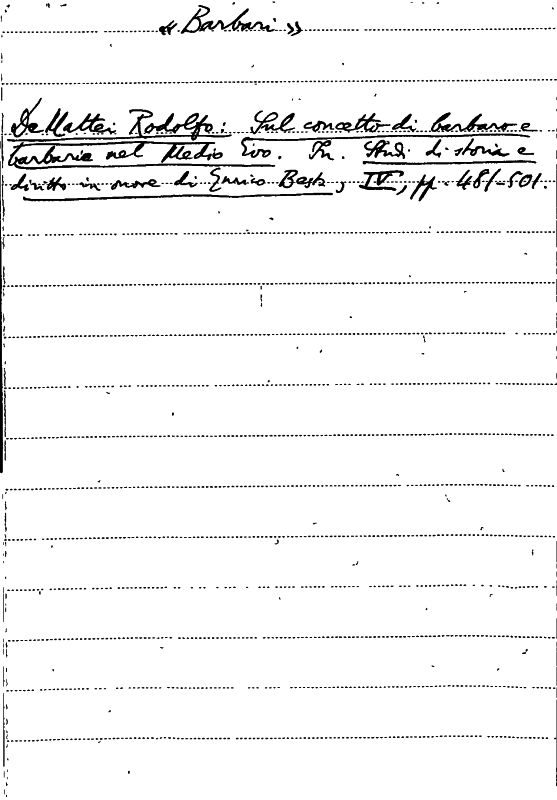 « Barbari »
De Mattei Rodolfo: Sul concetto di barbaro e
barbarie nel Medio Evo. In. Studi di storia e
diritto in onore di Enrico Besta, IV, pp. 481-501.